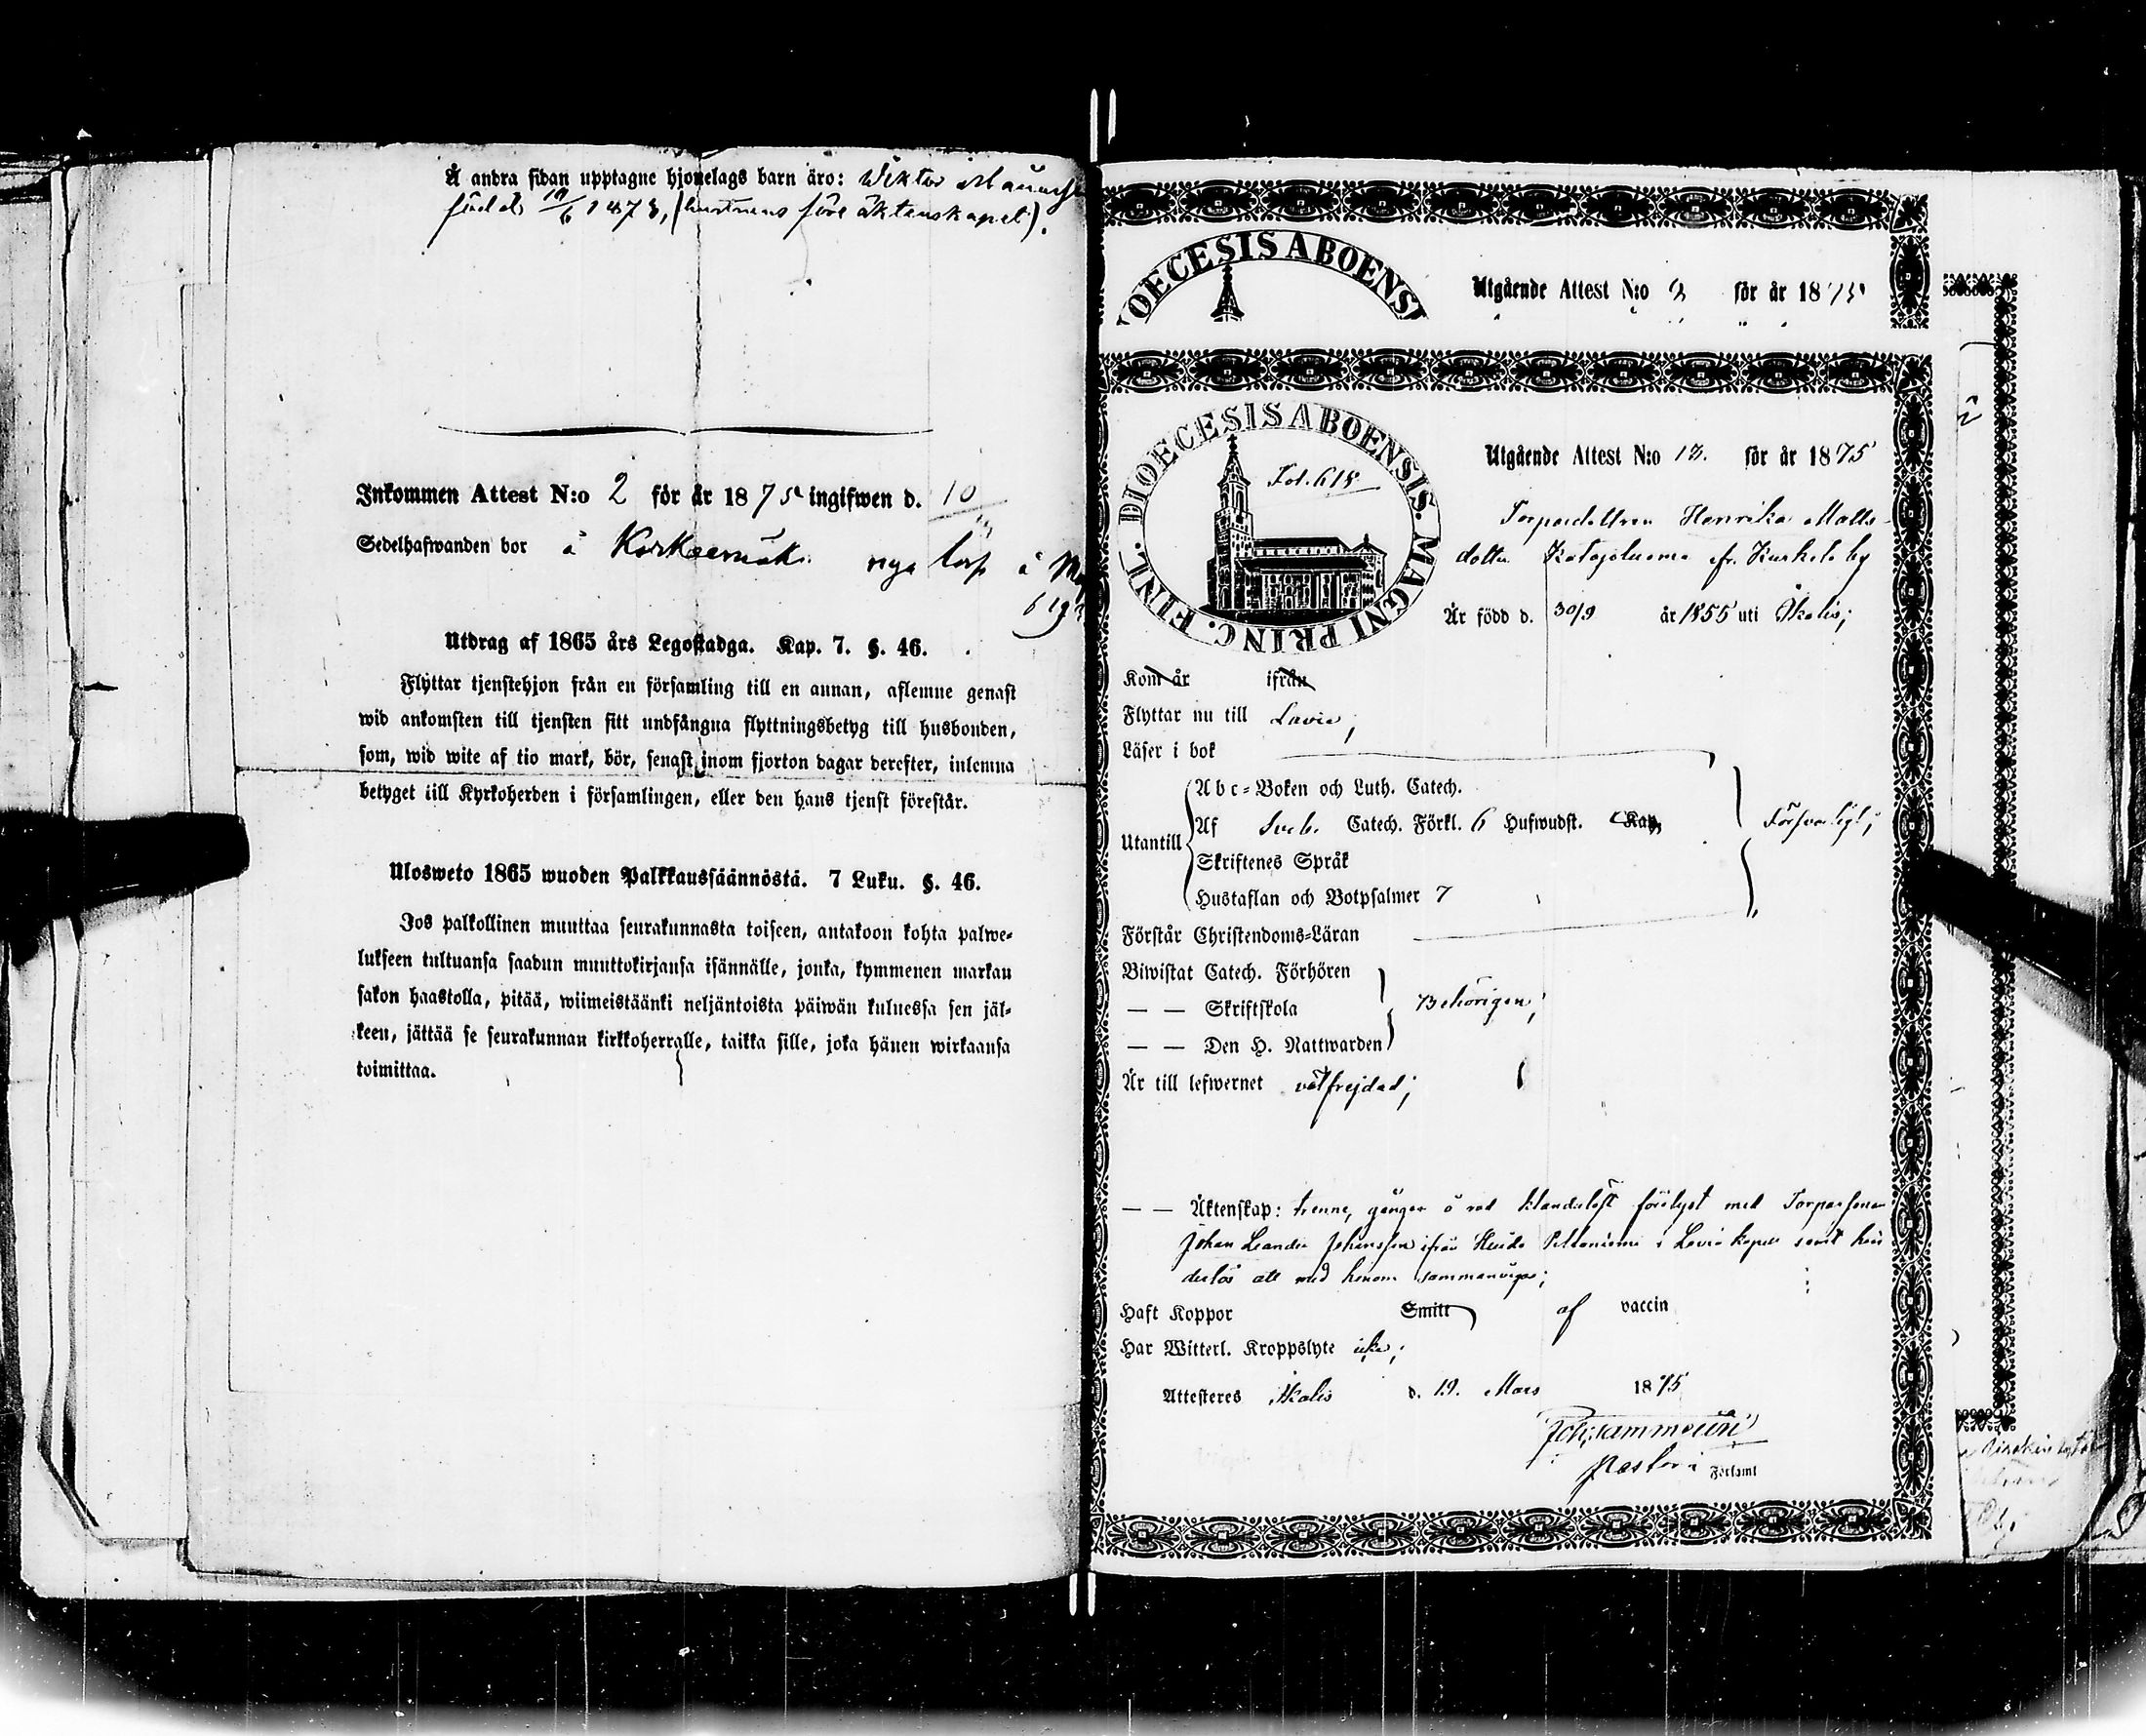 Å andra sidan upptagne hjonelags barn äro: Wiktor
född 10/6 1873, (hustruns före äktenskapet).
Inkommen Attest N:o 2 för år 1875 ingifwen d. 10
Sedelhafwanden bor å nya torp å
Utdrag af 1865 års Legostadga. Kap. 7. §. 46.
Flyttar tjenstehjon från en församling till en annan, aflemne genast
wid ankomsten till tjensten sitt undfångna flyttningsbetyg till husbonden,
som, wid wite af tio mark, bör, senast inom fjorton dagar derefter, inlemna
betyget till Kyrkoherden i församlingen, eller den hans tjenst förestår.
Ulosweto 1865 wuoden Palkkaussäännöstä. 7 Luku. §. 46.
Jos palkollinen muuttaa seurakunnasta toiseen, antakoon kohta palwe-
lukseen tultuansa saadun muuttokirjansa isännälle, jonka, kymmenen markan
sakon haastolla, pitää, wiimeistäänki neljäntoista päiwän kuluessa sen jäl-
keen, jättää se seurakunnan kirkkoherralle, taikka sille, joka hänen wirkaansa
toimittaa.
OECESIS ABOENSI
Utgående Attest N:o 2 för år 1875
DIOECESIS ABOENSIS. MAGNI PRINC. FINL.
Fol. 618
Utgående Attest N:o 13. för år 1875
Torparedottren Henrika Matts-
dotter Katajaluoma fr. Kurkela by
Är född d. 30/9 år 1855 uti Ikalis;
Kom år ifrån
Flyttar nu till Lavia;
Läser i bok
Abc-Boken och Luth. Catech.
Utantill Af Sveb. Catech. Förkl. 6 Hufwudst. Kap. Försvarligt;
Skriftenes Språk
Hustaflan och Botpsalmer 7
Förstår Christendoms-Läran
Biwistat Catech. Förhören
— — Skriftskola Behörigen;
— — Den H. Nattwarden
Är till lefwernet välfrejdad;
— — Äktenskap: trenne gånger å rad klanderlöst förelyst med Torparsonen
Johan Leander Johansson ifrån i Lavia kapell samt hin-
derlös att med honom sammanvigas;
Haft Koppor Smitt af vaccin
Har Witterl. Kroppslyte icke;
Attesteres Ikalis d. 19. Mars 1875
Pastor i Församl